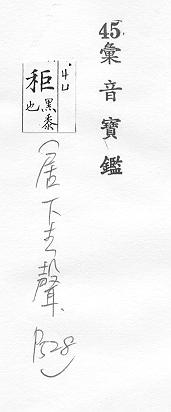 45.彙音寶鑑
4口
秬黑黍也
(居下去聲.
P528)